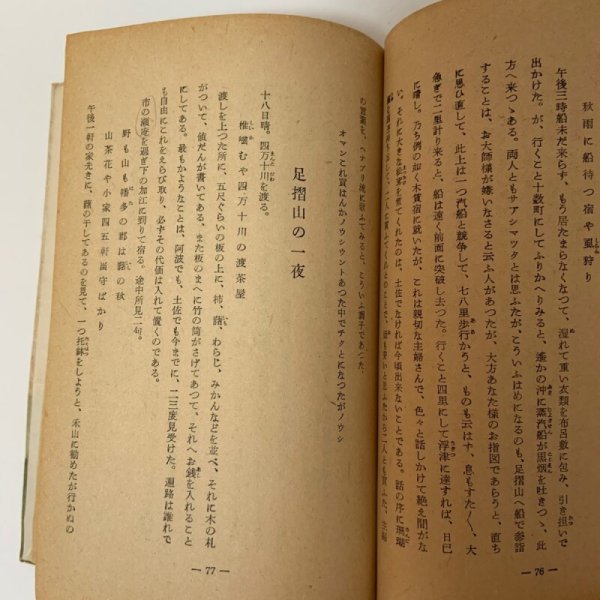 秋雨に船待つ宿や虱狩り
午後三時船未だ来らず、もう居たまらなくなつて、湿れて重い衣類を布呂敷に包み、引き担いで
出かけた。が、行くこと十数町にしてふりかへりみると、遙かの沖に蒸汽船が黒烟を吐きつゝ、此
方へ来つゝある。両人ともサアシマツタとは思ふたが、こういふはめになるのも、足摺山へ船で参詣
することは、お大師様が嫌いなさると云ふ人があつたが、大方あなた様のお指図であらうと、直ち
に思ひ直して、此上は一つ汽船と競争して、七八里歩行かうと、ものも云はす、息もすたく〳〵、大
急ぎで二里計り来ると、船は遠く前面に突破し去つた。行くこと四里にして浮津に達すれば、日已
に晴し。乃ち例の如く木賃宿に就いたが、これは親切な主婦さんで、色々と話しかけて絶え間がな
い。それに大きな
を煮てくれたのは、土佐でなければ今頃出来ないことである。話の序に珊瑚
― 76 ―
オマンこれ買はんかノウシウントあつた中でチクとになつたがノウシ
足摺山の一夜
十八日晴。四万十川を渡る。
椎嚙むや四万十川の渡茶屋
渡しを上つた所に、五尺ぐらいの板の上に、柿、藷、わらじ、みかんなどを並べ、それに木の札
がついて、値だんが書いてある。また板のまへに竹の筒がさげてあつて、それへお銭を入れること
にしてある。最もかようなことは、阿波でも、土佐でも今までに、二三度見受けた。遍路は誰れで
も自由にこれをえらび取り、必ずその代価は入れて置くのである。
市の瀬庵を過ぎ下の加江に到りて宿る。途中所見二句。
野も山も幡多の郡は藷の秋
山茶花や小家四五軒留守ばかり
午後一軒の家先きに、藷の干してあるのを見て、一つ托鉢をしようと、禾山に勧めたが行かぬの
― 77 ―